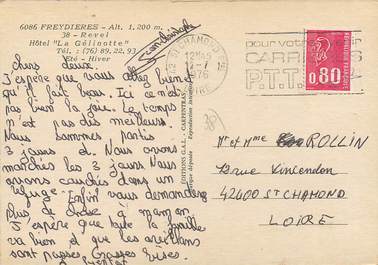 6086 FREYDIERES - Alt. 1.200 m.
38 - Revel
Hôtel "La Gélinotte"
Tél. : (76) 89.22.93
Eté - Hiver
Chers deux.
J'espère que vous allez bien et
qu'il fait beau. Ici ce n'est
pas bien la joie. Le temps
n'est pas des meilleurs
Nous sommes partis
3 jours et. Nous avons
marchés les 3 jours Nous
avons couchés dans un
refuge. Enfin vous demanderez
plus de à maman
J'espère que toute la famille
va bien et que les
sont passés. Grosses Bises.
EDITIONS G.A.L. - CARPENTRAS
Reproduction interdite
42 ST CHAMOND
1976
pour votre
P.T.T.
0,80
REPUBLIQUE FRANCAISE
Mr et Mme ROLLIN
12 rue Vincendon
42400 ST CHAMOND
LOIRE